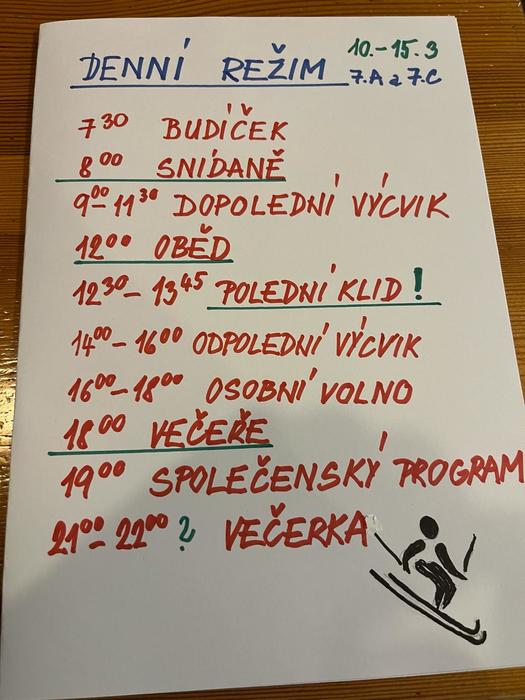 DENNÍ REŽIM 10.-15.3
7.A a 7.C
7³⁰ BUDÍČEK
8⁰⁰ SNÍDANĚ
9⁰⁰-11³⁰ DOPOLEDNÍ VÝCVIK
12⁰⁰ OBĚD
12³⁰-13⁴⁵ POLEDNÍ KLID!
14⁰⁰-16⁰⁰ ODPOLEDNÍ VÝCVIK
16⁰⁰-18⁰⁰ OSOBNÍ VOLNO
18⁰⁰ VEČEŘE
19⁰⁰ SPOLEČENSKÝ PROGRAM
21⁰⁰-22⁰⁰ ? VEČERKA